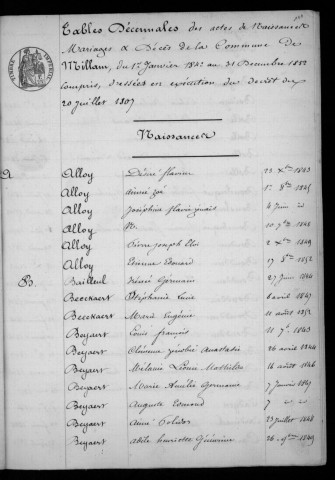 Tables Décennales des actes de Naissances
Mariages & Décès de la Commune de
Millam, du 1er Janvier 1843 au 31 Decembre 1852
compris, dressées en exécution du decret du
20 Juillet 1807
Naissances
A
Alloy Désiré flavien 23 Xbre 1843
Alloy aimée zoé 1845
Alloy Joséphine flavie 4 Juin
Alloy N. 1848
Alloy Pierre Joseph Eloi 2 Xbre 1849
Alloy Edouard 17 8bre 1852
B.
Bailleul Henri Germain 27 Juin 1844
Beeckaert Stéphanie Lucie 6 avril 1847
Beeckaert Marie Eugénie 11 aout 1852
Beyaert Louis françois 11 7bre 1843
Beyaert Clémence Anastasie 26 avril 1844
Beyaert Mélanie Léonie Mathilde 16 aout 1846
Beyaert Marie Amélie Germaine 7 Janvier 1849
Beyaert Auguste Edmond 7
Beyaert Aimé Polidor 23 Juillet 1848
Beyaert henriette 26 9bre 1849